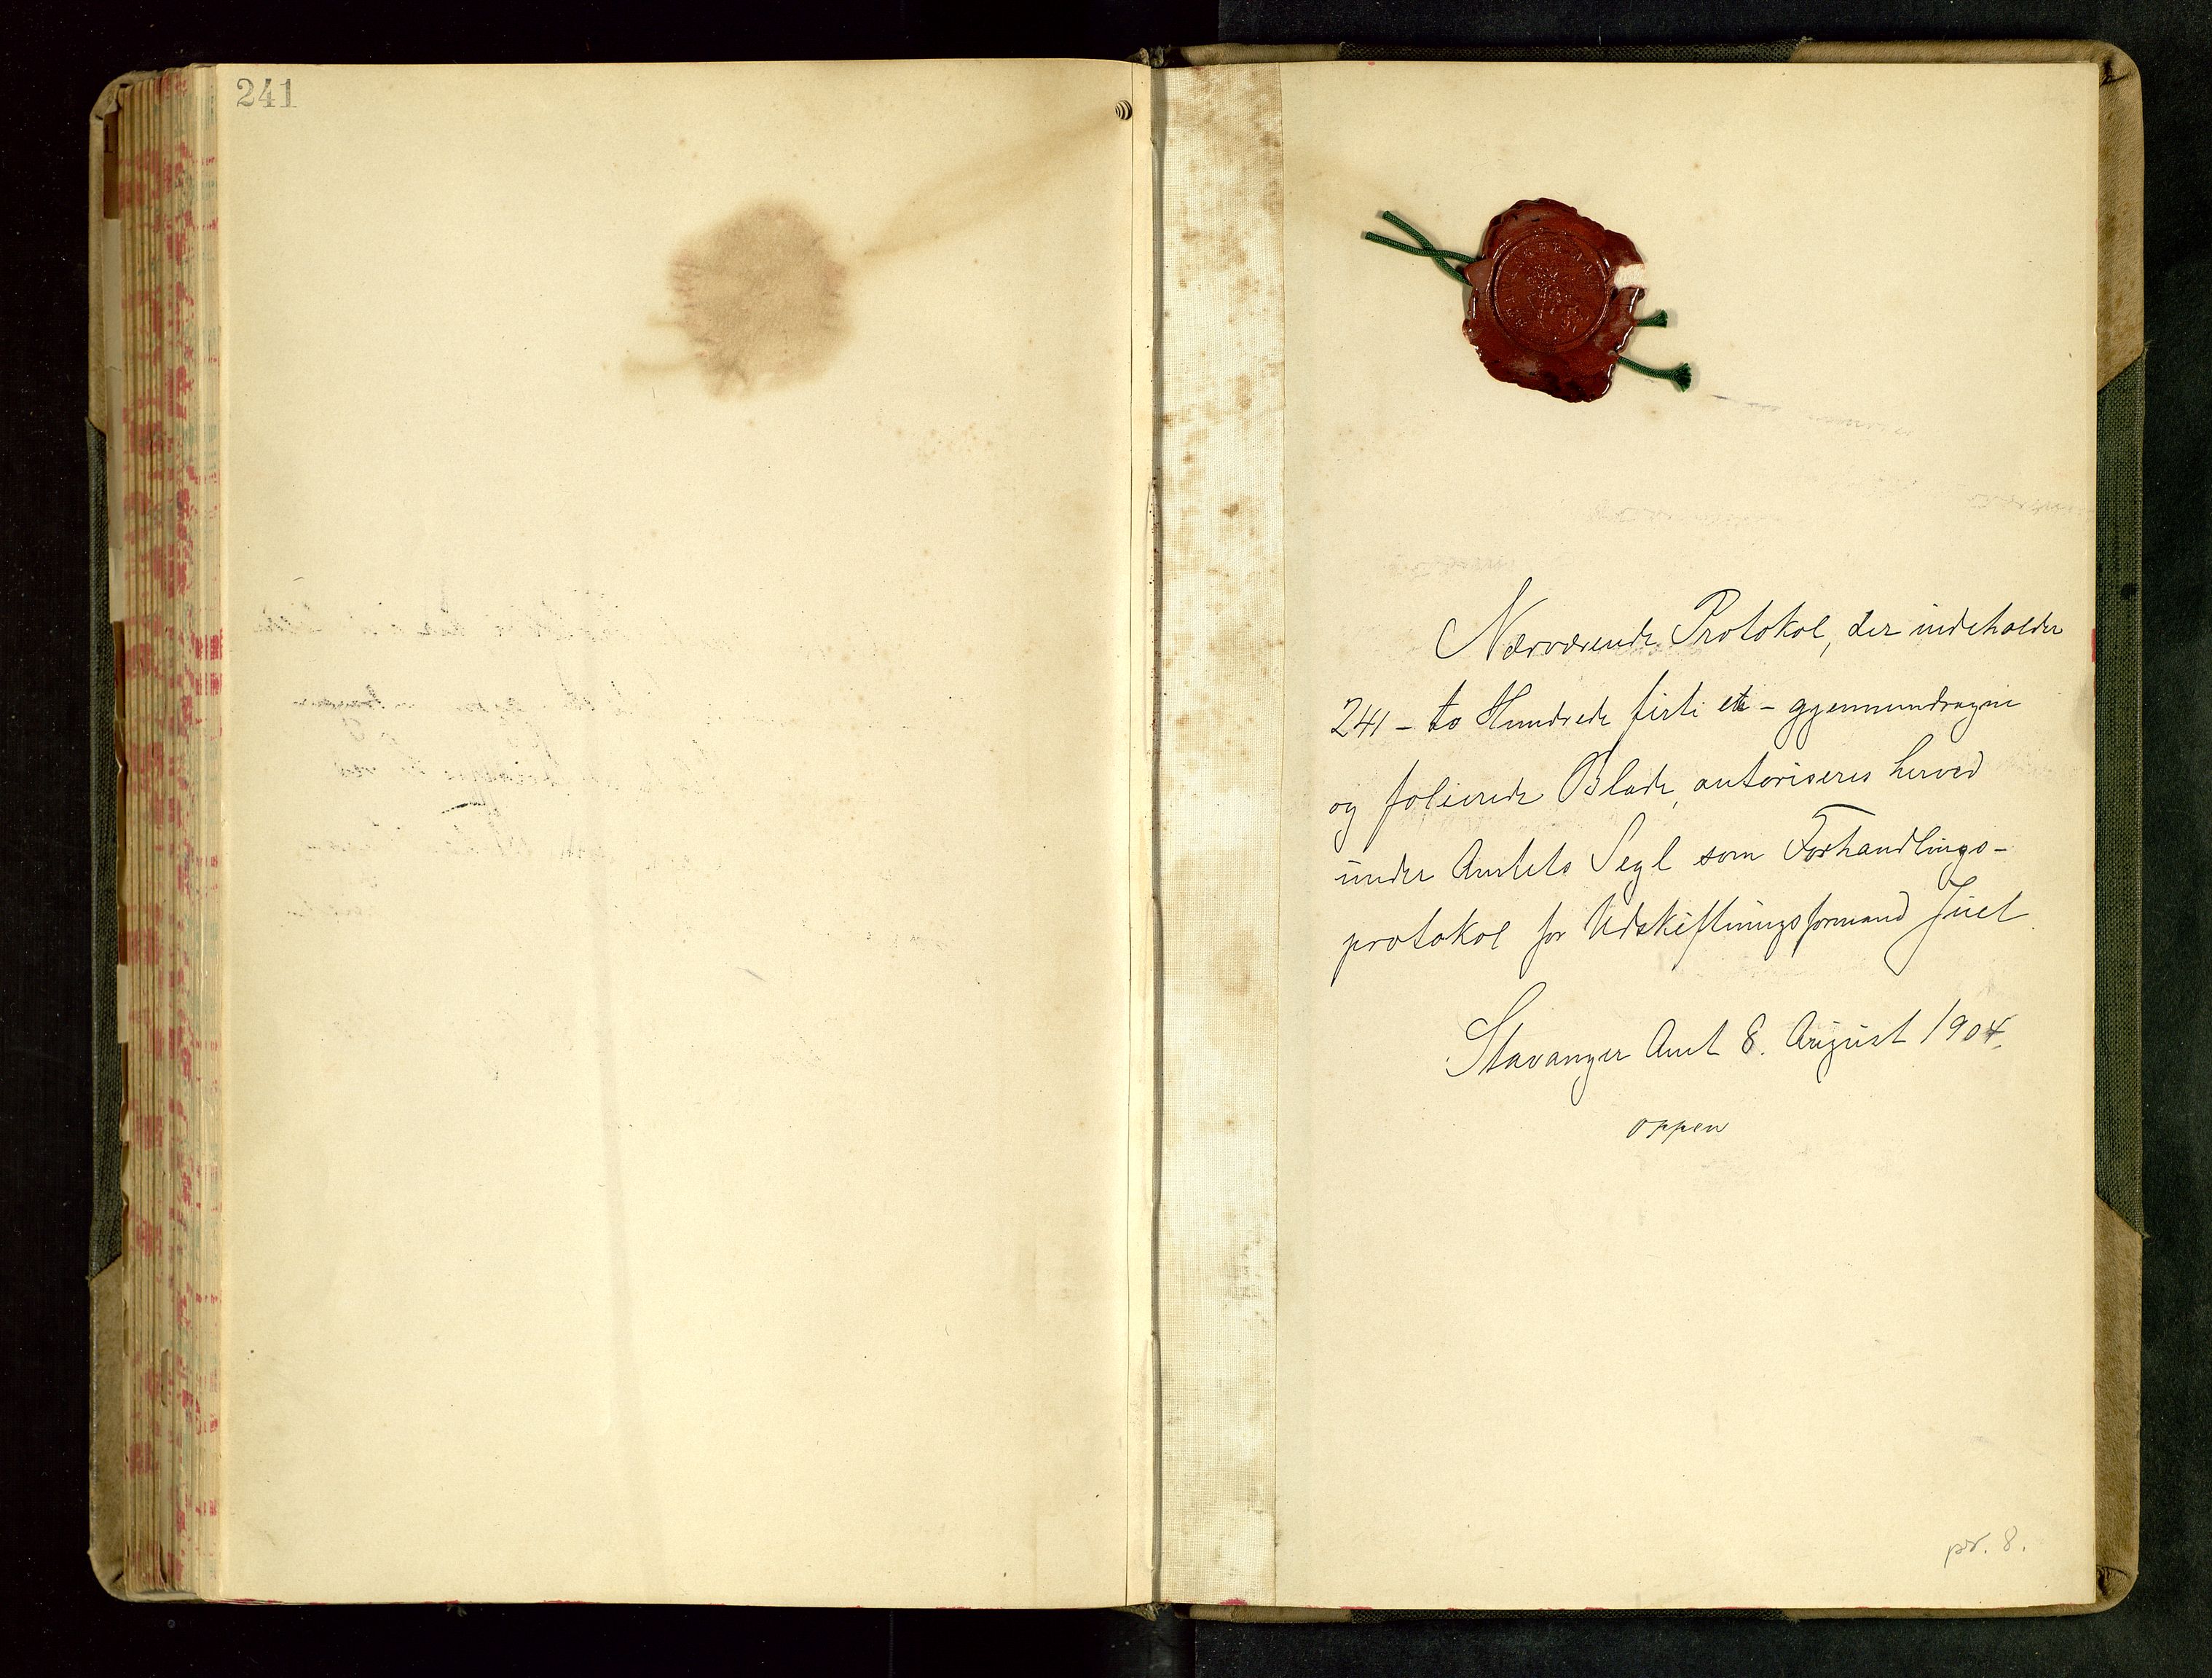 241
Nærværende Protokol, der indeholder
241 – to Hundrede firti et – gjennemdragne
og folierede Blade, autoriseres herved
under Amtets Segl som Forhandlings-
protokol for Udskiftningsformand Juel.
Stavanger Amt 8. August 1904.
oppen
pr. 8.